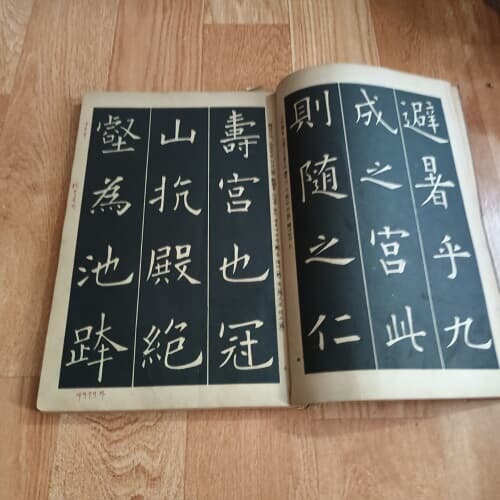 避暑乎九
成之宮此
則随之仁
壽宮也冠
山抗殿絕
壑為池跨